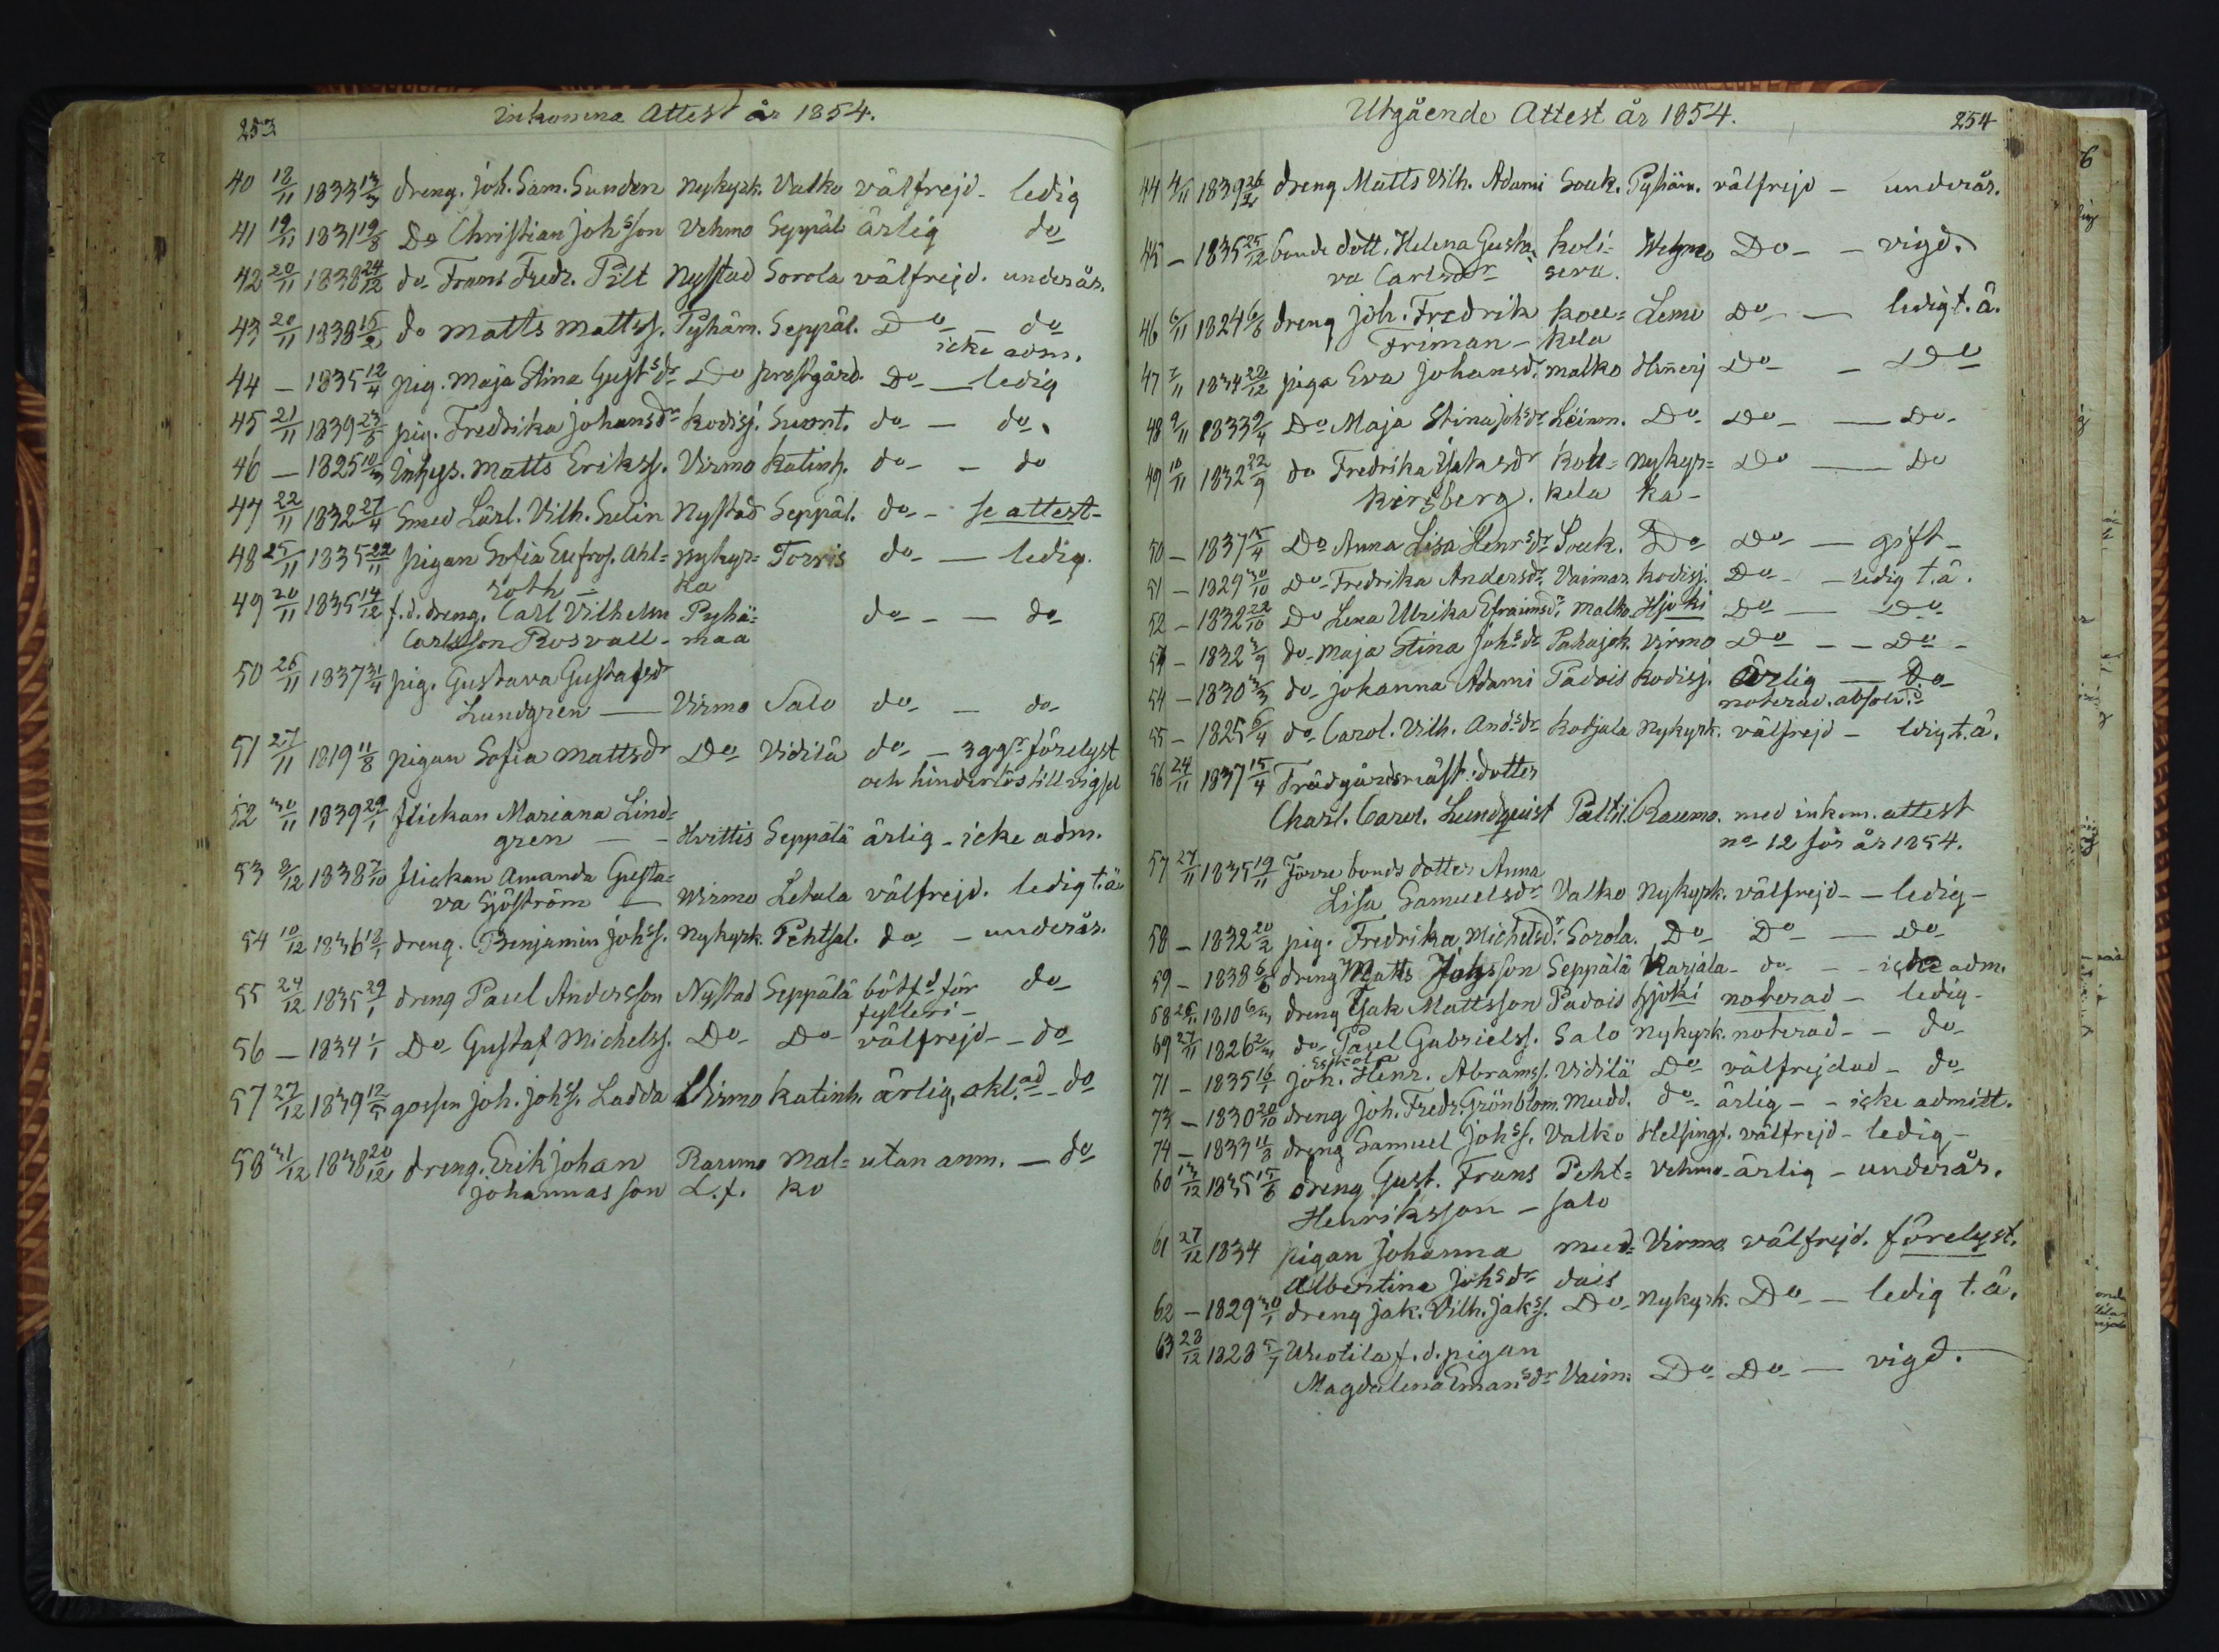 253
Inkomna Attest år 1854.
40 18/11 1833 13/3 dreng. Joh. Sam. Sunden Nykyrk. Valko välfrejd - ledig
41 19/11 1831 19/8 Do Christian Johsson Vehmo Seppäl. ärlig do
42 20/11 1838 24/12 do Frans Fredr. Pilt Nystad Sorola välfrejd. underår.
43 20/11 1838 16/2 do Matts Mattss. Pyhäm. Seppäl. Do - do
icke adm.
44 - 1835 12/4 pig. Maja Stina Gustsdr Do prestgård. Do - ledig
45 21/11 1839 23/5 pig. Fredrika Johansdr Kodisj. Suont. do - do
46 - 1825 10/3 Inhys. Matts Erikss. Virmo Katinh. do - do
47 22/11 1832 27/4 Smed Carl. Vilh. Selin Nystad Seppäl. do - se attest -
48 25/11 1835 22/11 pigan Sofia Eufros. Ahl= Nykyr= Torris do - ledig.
roth - ka
49 20/11 1835 14/12 f.d. dreng. Carl Vilhelm Pyhä= do - - do
Carlsson Rosvall - maa
50 26/11 1837 31/4 pig. Gustava Gustafsdr
Lundgren - Virmo Salo do - do
51 27/11 1819 11/8 pigan Sofia Mattsdr Do Vidilä do - 3 ggr förelyst
och hinderlös till vigsel
52 30/11 1839 29/1 flickan Mariana Lind=
gren - - Hvittis Seppälä ärlig - icke adm.
53 8/12 1838 7/10 flickan Amanda Gusta=
va Sjöström - Wirmo Letala välfrejd. ledig t. ä
54 10/12 1836 18/1 dreng. Benjamin Johss. Nykyrk. Pehtsal. do - underår.
55 24/12 1835 29/1 dreng Paul Andersson Nystad Seppälä bött d för do
fylleri -
56 - 1834 1/1 Do Gustaf Michelss. Do Do välfrejd - do
57 27/12 1849 12/5 gossen Joh. Johss. Ladda Virmo Katinh. ärlig, okl.ad - do
58 31/12 1838 20/12 dreng. Erik Johan Raumo Mal= utan anm. - do
Johannasson L.f. ko
Utgående Attest år 1854.
254
44 4/11 1839 26/2 dreng Matts Vilh. Adami Souk. Pyhäm. välfrejd - underår.
45 - 1835 25/12 bonde dott. Helena Gusta= Koli= Wehmo Do - - vigd.
va Carlsdr sera.
46 6/11 1824 6/6 dreng Joh. Fredrik Kou= Lemo Do - ledig t. ä.
Friman - kela
47 7/11 1834 22/12 piga Eva Johansd. Malko Hinnerj Do - Do
48 9/11 1833 9/4 Do Maja Stina Johsdr Leinm. Do Do - Do
49 10/11 1832 22/9 do Fredrika Isaksdr Kou= Nykyr= Do - Do
Kirsberg. kela ka -
50 - 1837 15/4 Do Anna Lisa Henrsdr Souk. Do Do - gift -
51 - 1829 30/10 Do Fredrika Andersdr Vaimar. Kodisj. Do - ledig t. ä.
52 - 1832 22/10 Do Lena Ulrika Efraimsd. Malko Hjoki Do - Do
54 - 1832 3/9 do Maja Stina Johsdr Pahojok. Virmo Do - - Do -
54 - 1830 3/3 do Johanna Adami Padois Kodisj. Ärlig - Do
noterad. absolv.d
55 - 1825 6/4 do Carol. Vilh. Andsdr Kodjala Nykyrk. välfrejd - ledig t. ä.
56 24/11 1837 15/4 Trädgårdsmäst. dotter
Charl. Carol. Lundquist Palttil. Raumo. med inkom. attest
no 12 för år 1854.
57 27/11 1835 19/11 Förre bonds dotter Anna
Lisa Samuelsdr Valko Nykyrk. välfrejd - - ledig -
58 - 1832 20/2 pig. Fredrika Michelsdr Sorola. Do Do - Do
59 - 1838 6/6 dreng Matts Johsson Seppälä Karjala - do - - icke adm.
68 26/11 1810 6/3 dreng Isak Mattsson Padois Hjoki noterad - ledig -
69 27/11 1826 2/3 do Paul Gabrielss. Salo Nykyrk. noterad - - do
Eskola
71 - 1835 16/1 Joh. Henr. Abramss. Vidilä Do välfrejdad - do
73 - 1830 20/10 dreng Joh. Fredr. Grönblom. Mudd. do ärlig - - icke admitt.
74 - 1833 11/8 dreng Samuel Johss. Valko Helsingf. välfrejd - ledig -
60 13/12 1835 15/6 dreng Gust. Frans Peht= Vehmo - ärlig - underår.
Henriksson - salo
61 27/12 1834 pigan Johanna Mud= Virmo välfrejd. förelyst.
Albertina Johsdr dais
62 - 1829 30/1 dreng Jak. Vilh. Jakss. Do Nykyrk. Do - ledig t. ä.
63 28/12 1828 5/7 Uhotila f.d. pigan
Magdalena Emansdr Vaim. Do Do - vigd.